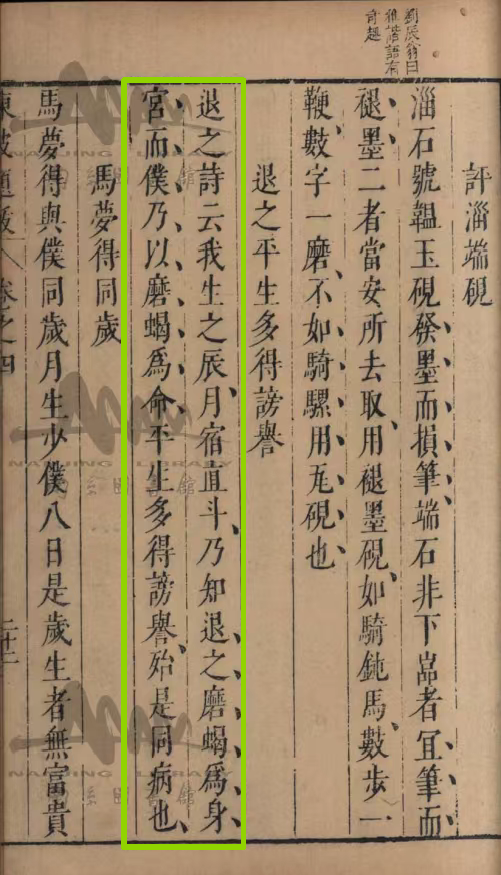 劉辰翁曰
雅諧語有
奇趣
評淄端硯
淄石號韞玉硯、發墨而損筆、端石非下嵓者、宜筆而
褪墨、二者當安所去取、用褪墨硯、如騎鈍馬、數步一
鞭、數字一磨、不如騎騾用瓦硯也、
退之平生多得謗譽
退之詩云我生之辰、月宿直斗、乃知退之磨蝎爲身
宮、而僕乃以磨蝎爲命、平生多得謗譽、殆是同病也、
馬夢得同歲
馬夢得與僕同歲月生少僕八日是歲生者無富貴
東坡題跋 卷之四 二十二
NANJING LIBRARY